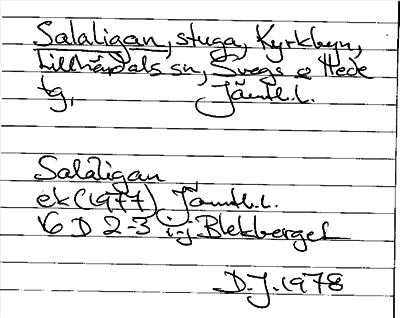 Salaligan, stuga, Kyrkbyn,
Lillhärdals sn, Svegs o Hede
tg, Jämtl.l.
Salaligan
ek (1977) Jämtl.l.
16 D 2-3 i-j Blekberget
D.J. 1978